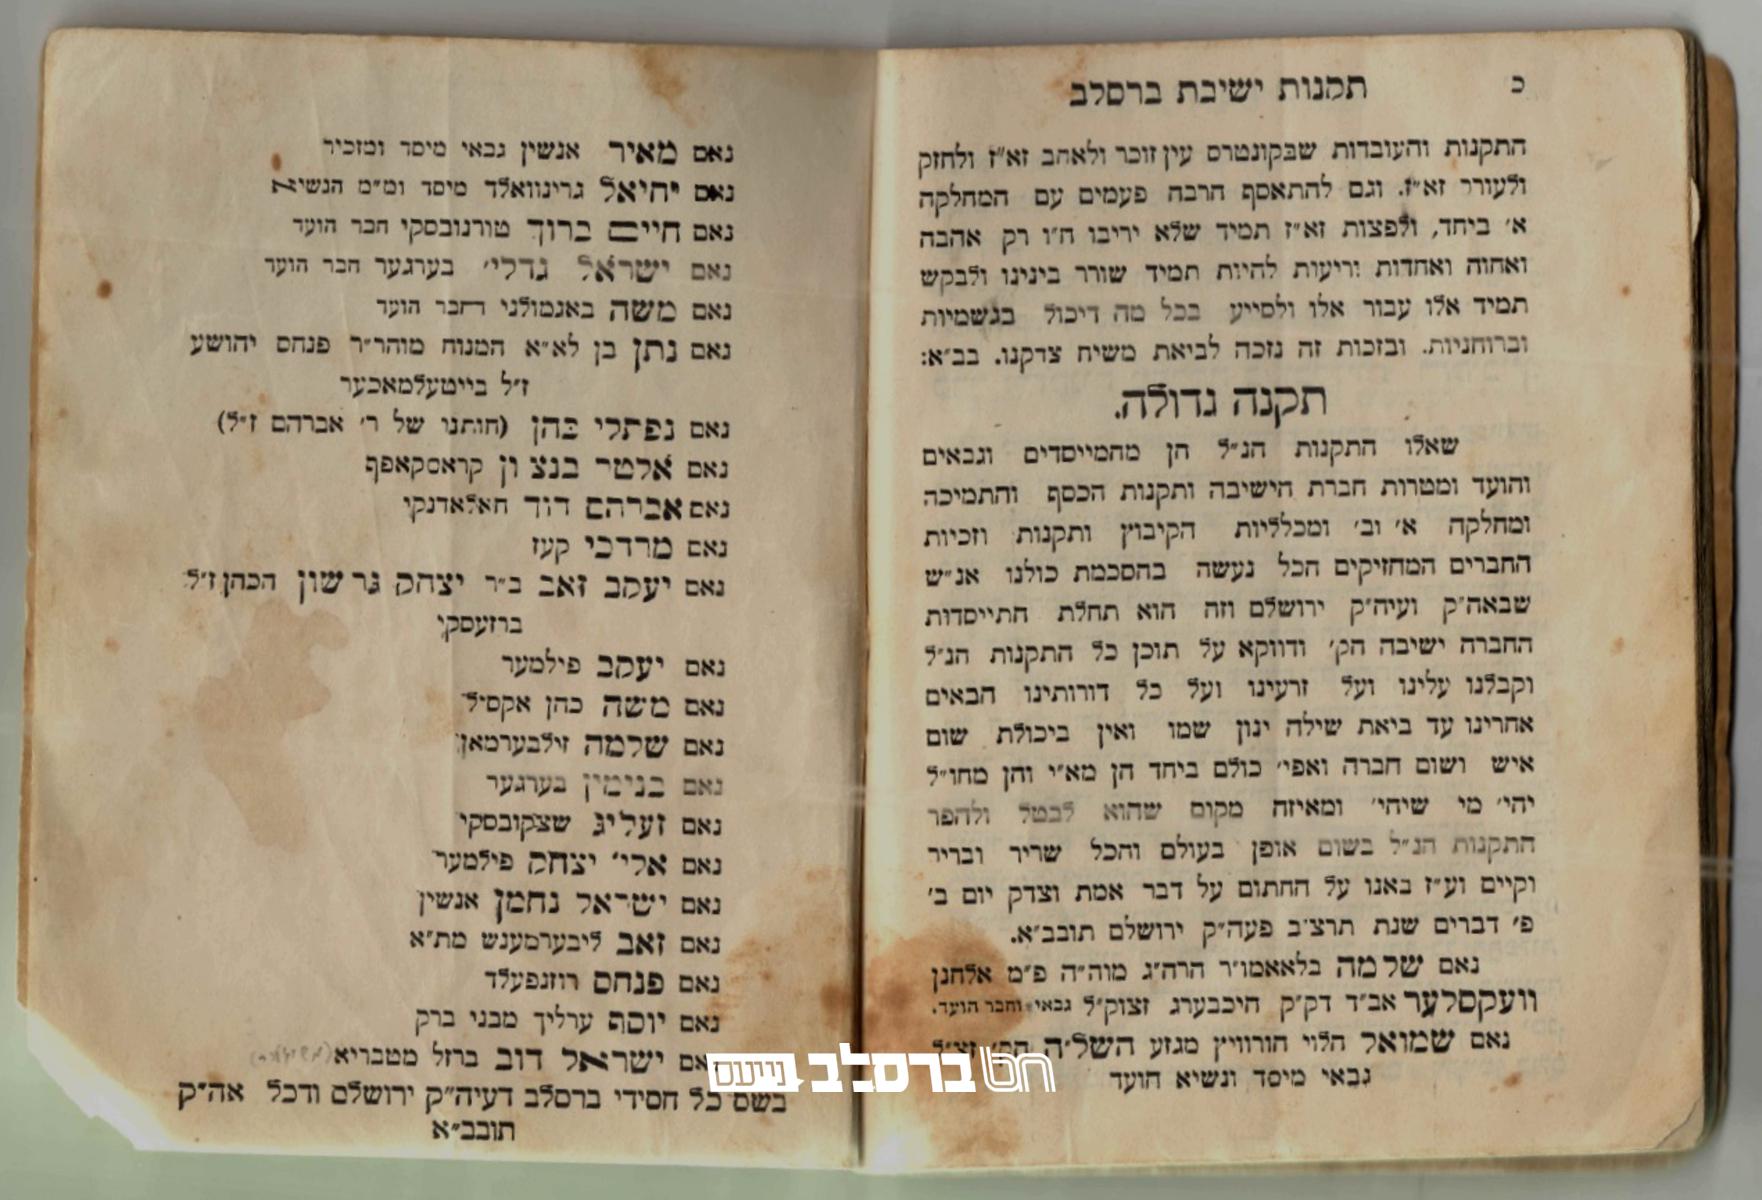 כ
תקנות ישיבת ברסלב
התקנות והעובדות שבקונטרס עין זוכר ולאהב זא״ז ולחזק
ולעורר זא״ז. וגם להתאסף הרבה פעמים עם המחלקה
א׳ ביחד, ולפצות זא״ז תמיד שלא יריבו ח״ו רק אהבה
ואחוה ואחדות וריעות להיות תמיד שורר בינינו ולבקש
תמיד אלו עבור אלו ולסייע בכל מה דיכול בגשמיות
וברוחניות. ובזכות זה נזכה לביאת משיח צדקנו. בב״א:
תקנה גדולה.
שאלו התקנות הנ״ל הן מהמייסדים וגבאים
והועד ומטרות חברת הישיבה ותקנות הכסף והתמיכה
ומחלקה א׳ וב׳ ומכלליות הקיבוץ ותקנות וזכיות
החברים המחזיקים הכל נעשה בהסכמת כולנו אנ״ש
שבאה״ק ועיה״ק ירושלם וזה הוא תחלת התייסדות
החברה ישיבה הק׳ ודווקא על תוכן כל התקנות הנ״ל
וקבלנו עלינו ועל זרעינו ועל כל דורותינו הבאים
אחרינו עד ביאת שילה ינון שמו ואין ביכולת שום
איש ושום חברה ואפי׳ כולם ביחד הן מא״י והן מחו״ל
יהי׳ מי שיהי׳ ומאיזה מקום שהוא לבטל ולהפר
התקנות הנ״ל בשום אופן בעולם והכל שריר ובריר
וקיים וע״ז באנו על החתום על דבר אמת וצדק יום ב׳
פ׳ דברים שנת תרצ״ב פעה״ק ירושלם תובב״א.
נאם שלמה בלאאמו״ר הרה״ג מוה״ה פ״מ אלחנן
וועקסלער אב״ד דק״ק היכבערג זצוק״ל גבאי וחבר הועד.
נאם שמואל הלוי הורוויץ מגזע השל״ה הק׳ זצ״ל
גבאי מיסד ונשיא הועד
נאם מאיר אנשין גבאי מיסד ומזכיר
נאם יחיאל גרינוואלד מיסד ומ״מ הנשיא
נאם חיים ברוך טורנובסקי חבר הועד
נאם ישראל גדלי׳ בערגער חבר הועד
נאם משה באנמולני חבר הועד
נאם נתן בן לא״א המנוח מוהר״ר פנחס יהושע
ז״ל בייטעלמאכער
נאם נפתלי כהן (חותנו של ר׳ אברהם ז״ל)
נאם אלטר בנציון קראסקאפף
נאם אברהם דוד חאלאדנקי
נאם מרדכי קעז
נאם יעקב זאב ב״ר יצחק גרשון הכהן ז״ל
ברזעסקי
נאם יעקב פילמער
נאם משה כהן אקסיל
נאם שלמה זילבערמאן
נאם בנימין בערגער
נאם זעליג שצקובסקי
נאם אלי׳ יצחק פילמער
נאם ישראל נחמן אנשין
נאם זאב ליבערמענש מת״א
נאם פנחס רוזנפעלד
נאם יוסף ערליך מבני ברק
נאם ישראל דוב ברזל מטבריא
בשם כל חסידי ברסלב דעיה״ק ירושלם ודכל אה״ק
תובב״א
ברסלב נייעס